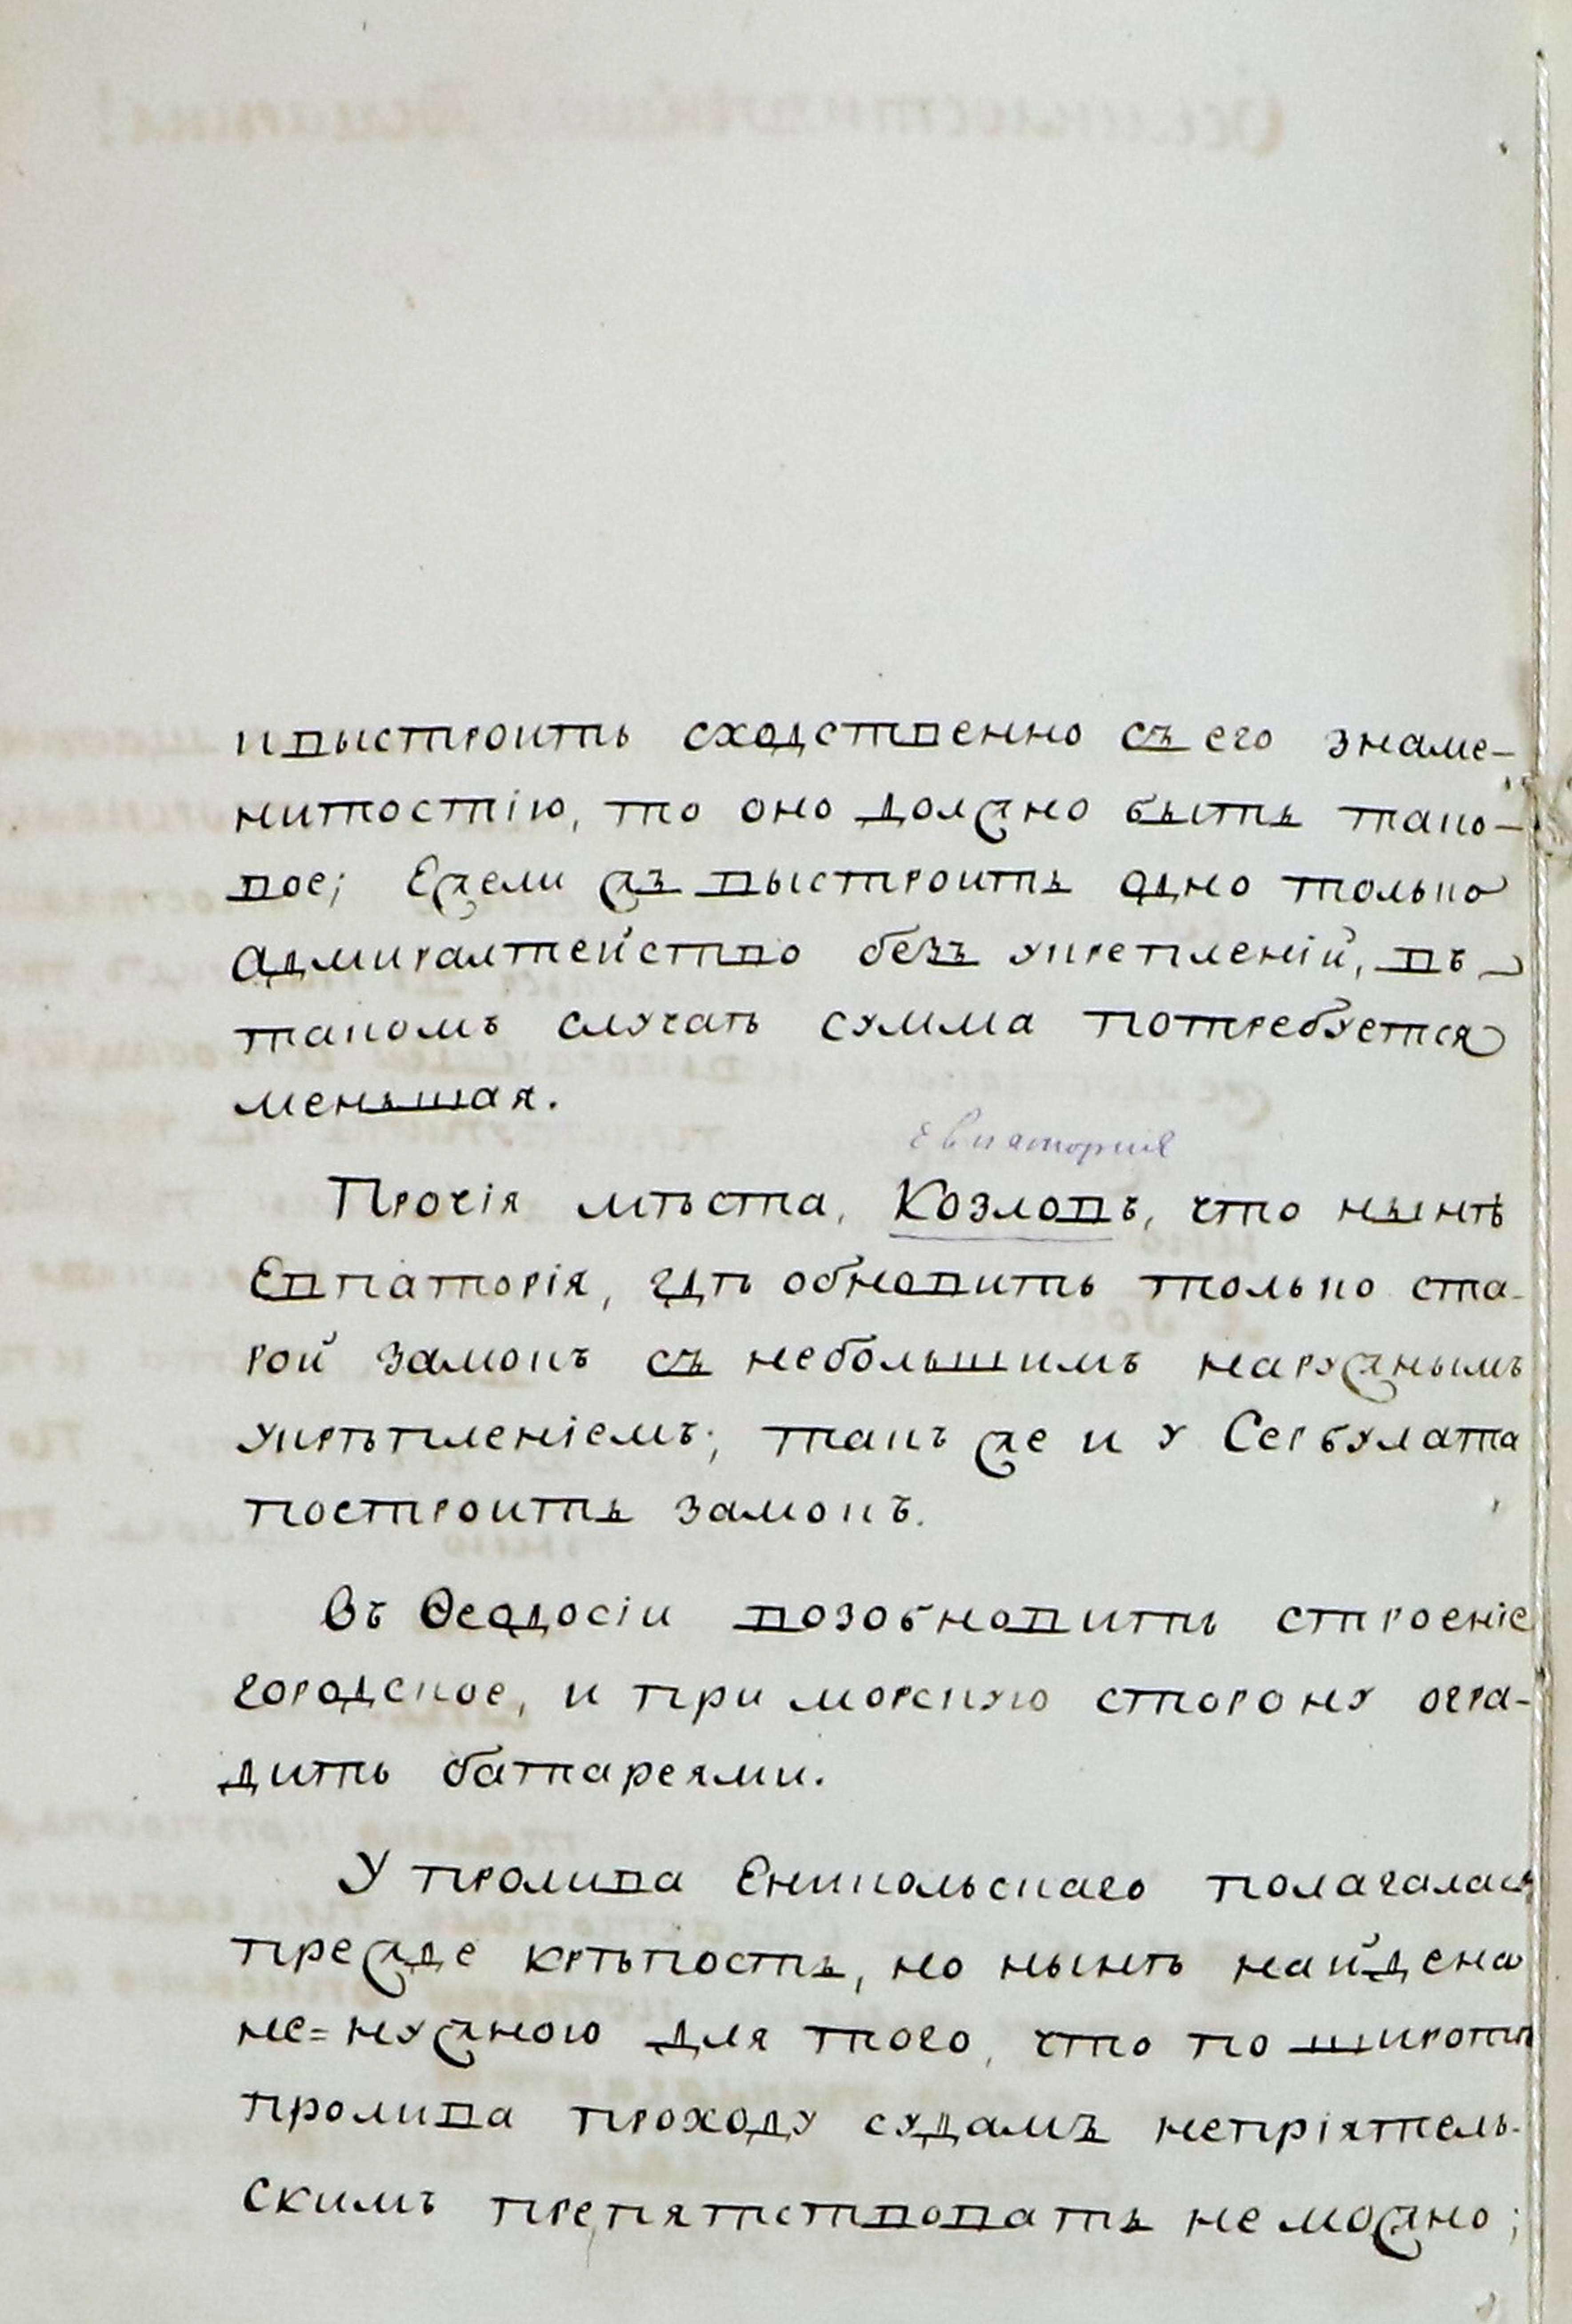 и выстроить сходственно съ его знаме-
нитостію, то оно должно быть тако-
вое; Ежели жъ выстроить одно только
адмиралтейство безъ укрепленій, въ
такомъ случаѣ сумма потребуется
меньшая.
Евпаторія
Прочія мѣста, Козловъ, что нынѣ
Евпаторія, гдѣ обновить только ста-
рой замокъ съ небольшимъ наружнымъ
укрѣпленіемъ; такъ же и у Сербулата
построить замокъ.
Въ Ѳеодосіи возобновить строеніе
городское, и при морскую сторону огра-
дить батареями.
У пролива Еникольскаго полагалась
прежде крѣпость, но нынѣ найдена
не=нужною для того, что по широтѣ
пролива проходу судамъ непріятель-
скимъ препятствовать не можно;